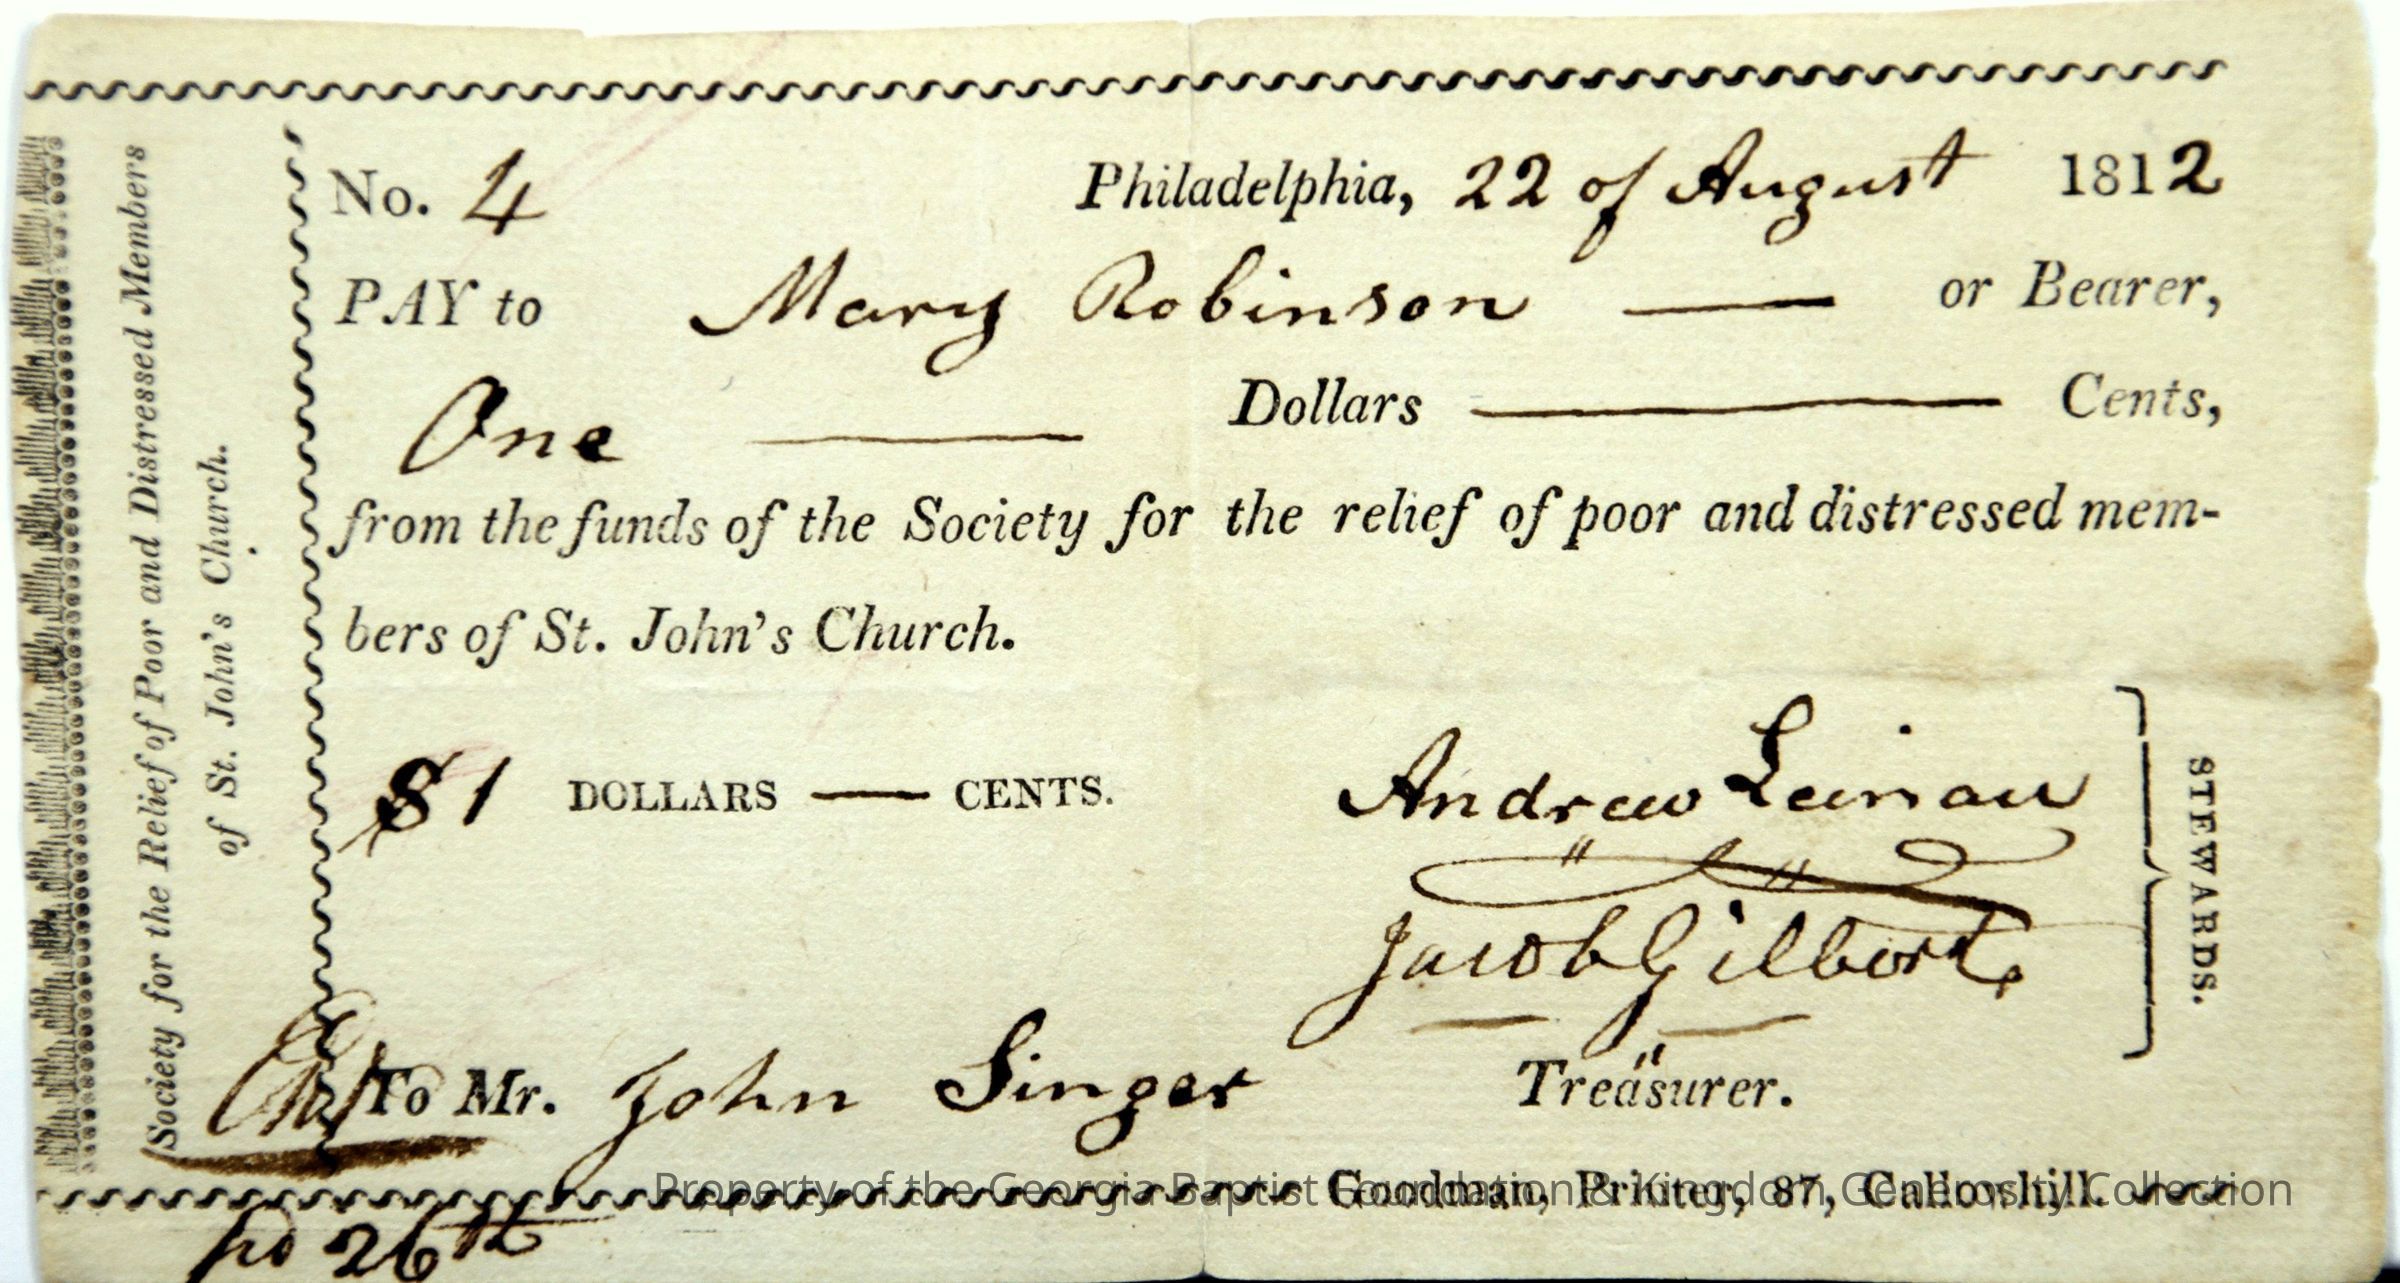 Society for the Relief of Poor and Distressed Members
of St. John's Church.
No. 4 Philadelphia, 22 of August 1812
PAY to Mary Robinson — or Bearer,
One — Dollars — Cents,
from the funds of the Society for the relief of poor and distressed mem-
bers of St. John's Church.
$1 DOLLARS — CENTS.
Andrew Leinau
Jacob Gilbert
STEWARDS.
To Mr. John Singer Treasurer.
Goodman, Printer, 87, Callowhill.
Property of the Georgia Baptist Foundation & Kingdom Generosity Collection
26th